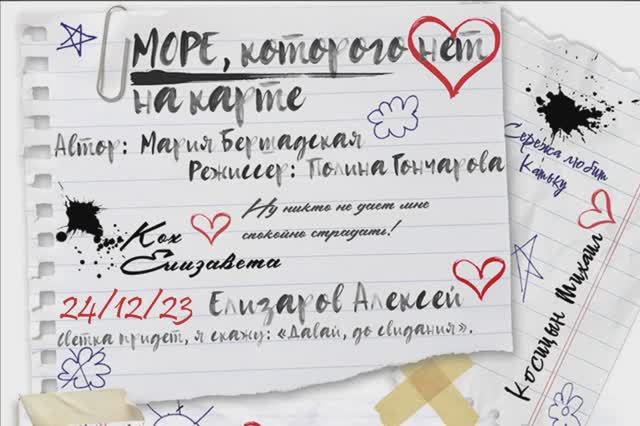 МОРЕ, которого нет
на карте
Автор: Мария Бершадская
Режиссер: Полина Гончарова
Сережа любит
Катьку
Ну никто не дает мне
спокойно страдать!
Кох
Елизавета
24/12/23 Елизаров Алексей
Светка придет, я скажу: «Давай, до свидания».
Косицын Михаил